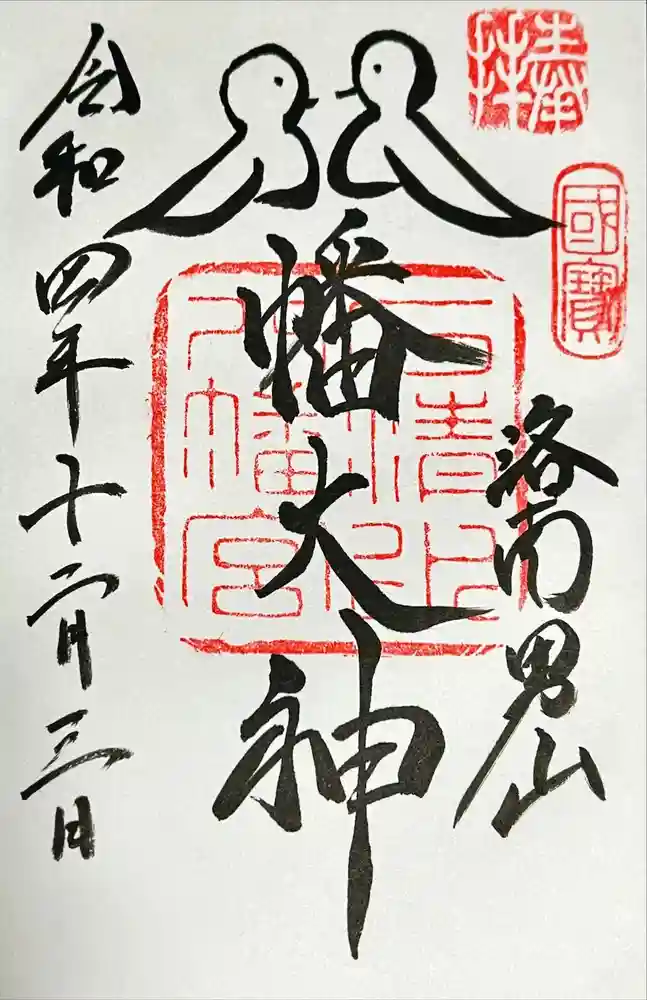 奉拝
國寶
洛南男山
八幡大神
石清水
八幡宮
令和四年十二月三日